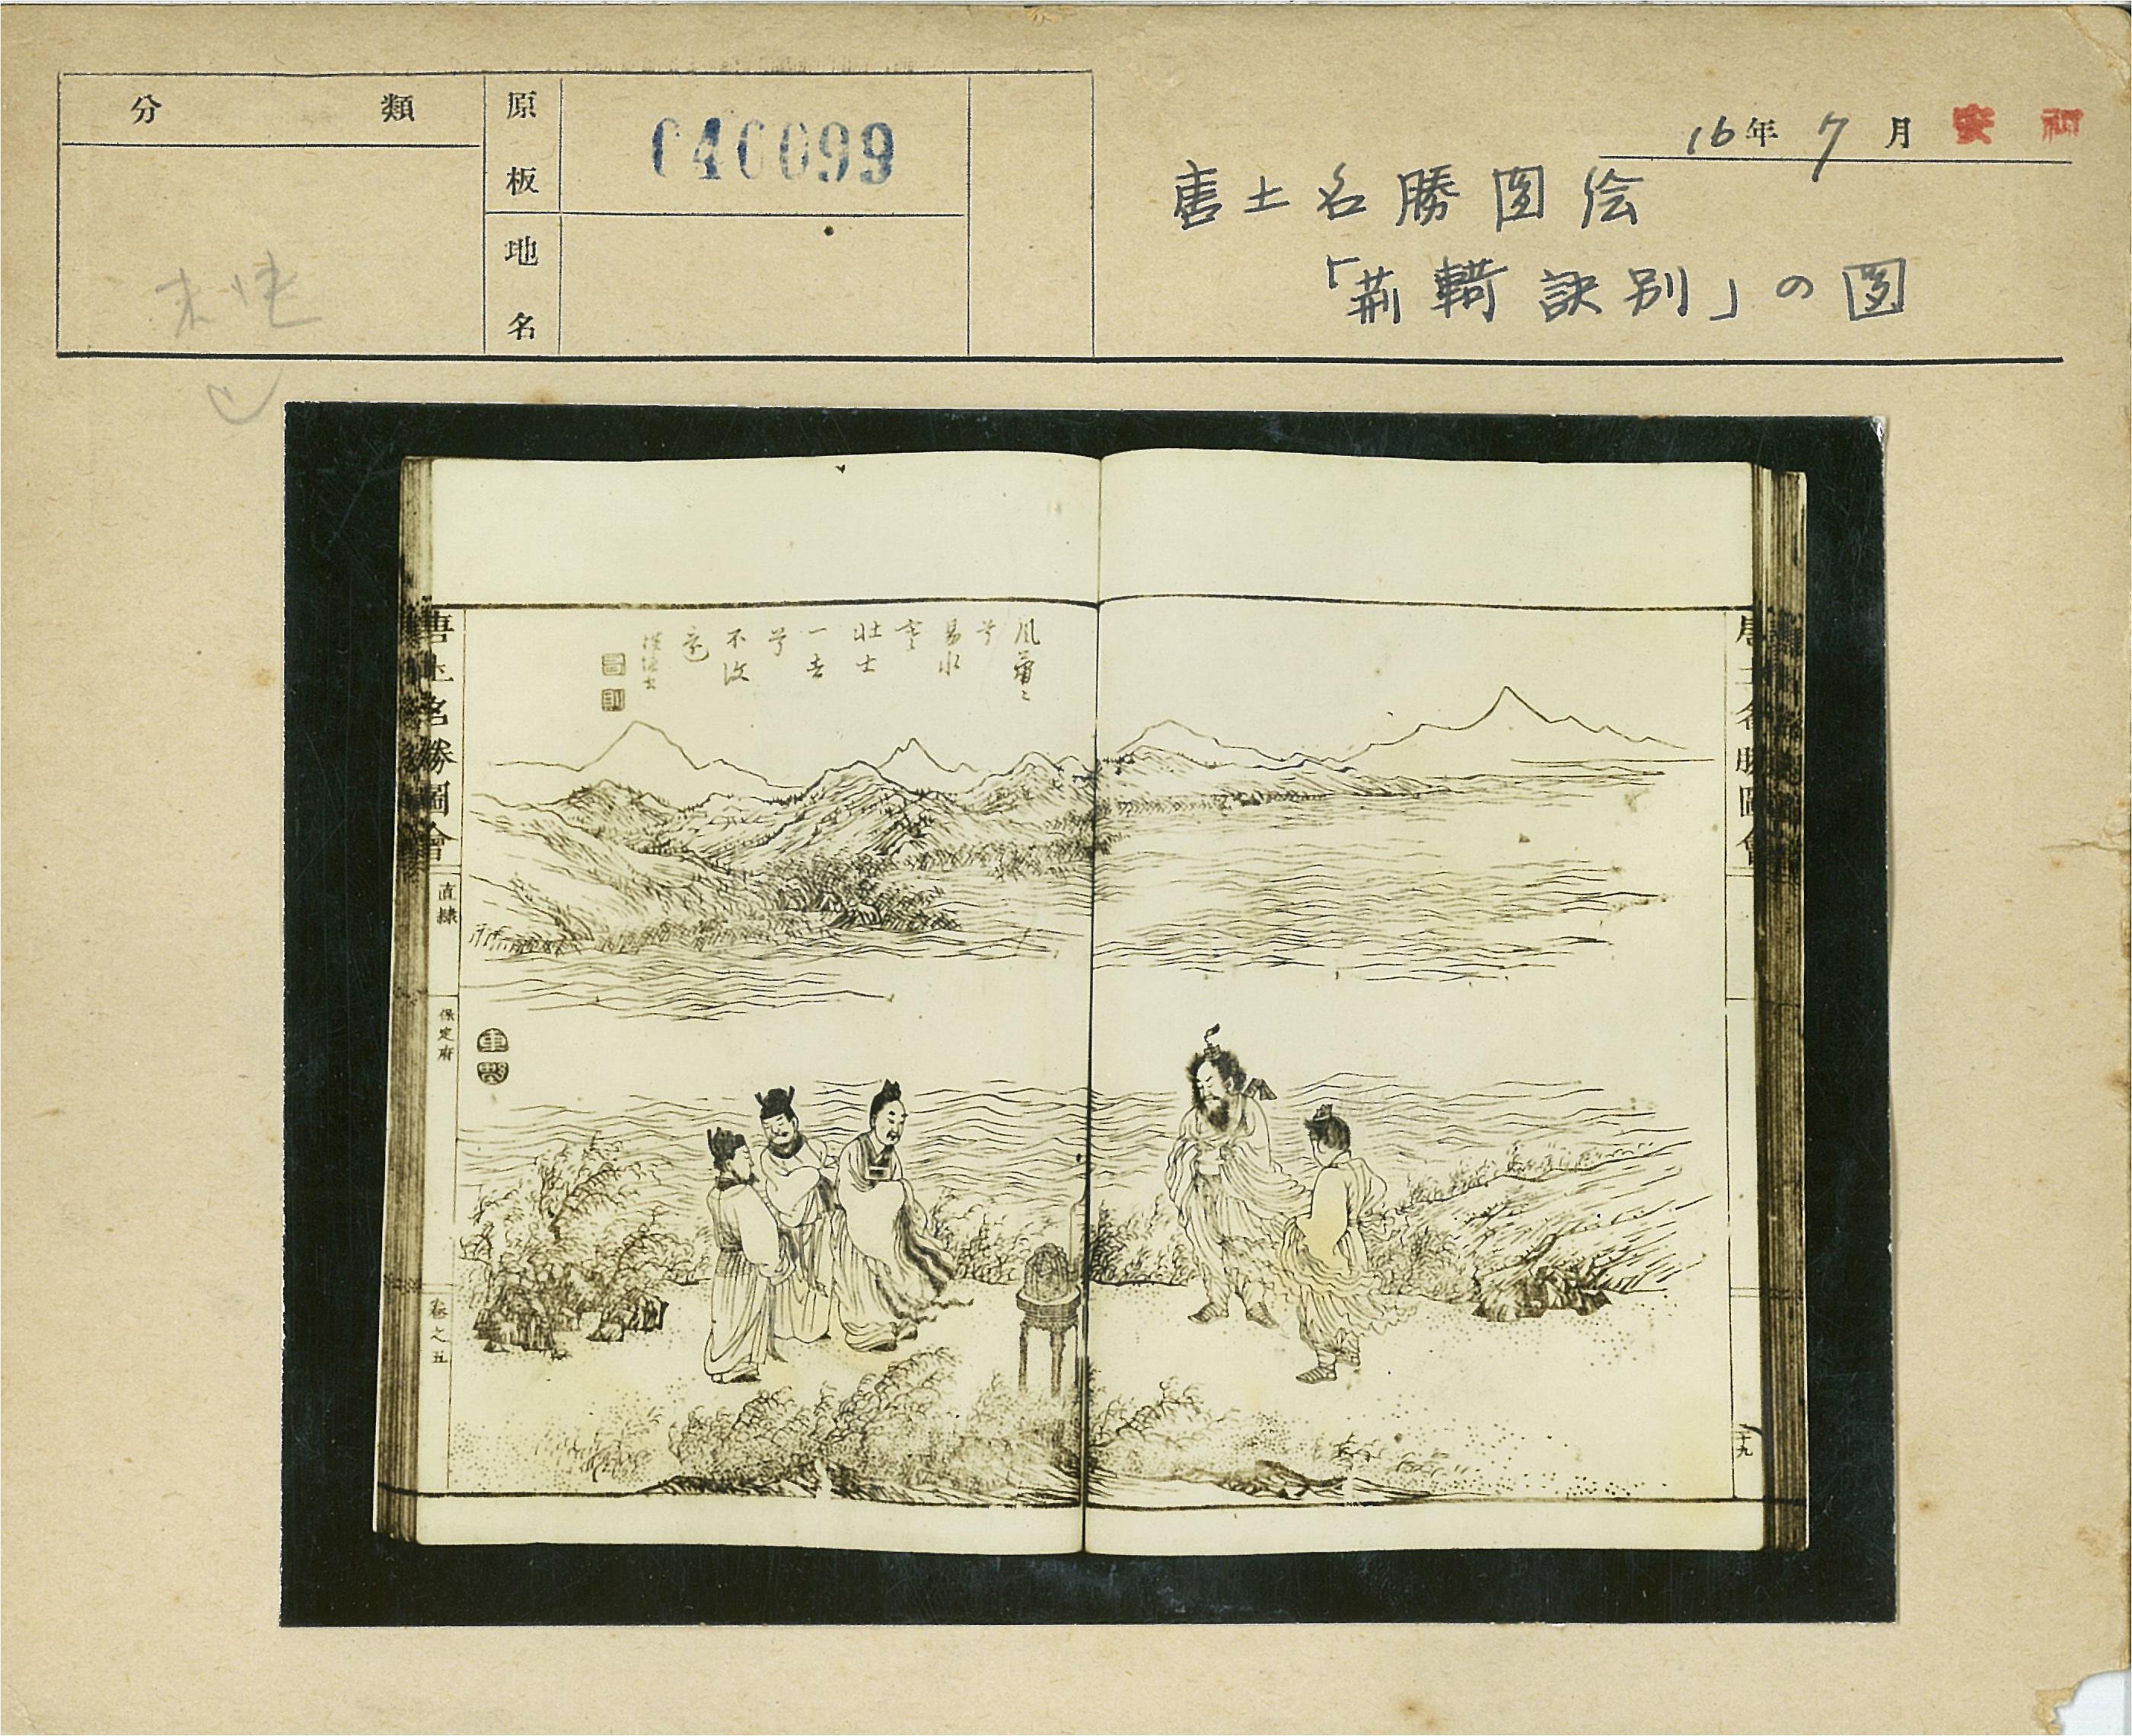 分類
原板
040099
地名
16年7月
唐土名勝図絵
「荊軻訣別」の図
風蕭〻
兮
易水
寒
壮士
一去
兮
不復
還
唐土名勝圖會
直隷
保定府
巻之五
唐土名勝圖會
十九